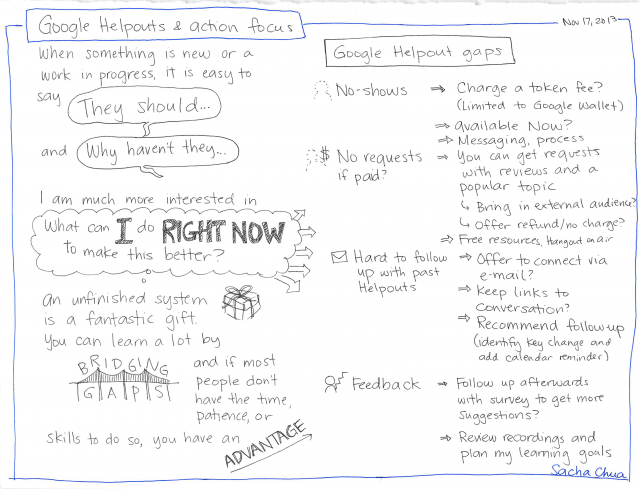 Google Helpouts & action focus
Nov 17, 2013
When something is new or a
work in progress, it is easy to
say
They should...
and
Why haven't they...
I am much more interested in
What can I do RIGHT NOW
to make this better?
An unfinished system
is a fantastic gift.
You can learn a lot by
BRIDGING
GAPS
and if most
people don't
have the time,
patience, or
skills to do so, you have an
ADVANTAGE
Google Helpout gaps
No-shows
⇒ Charge a token fee?
(Limited to Google Wallet)
⇒ Available Now?
⇒ Messaging, process
$ No requests
if paid?
⇒ You can get requests
with reviews and a
popular topic
↳ Bring in external audience?
↳ Offer refund/no charge?
⇒ Free resources, hangout on air
Hard to follow
up with past
Helpouts
⇒ Offer to connect via
e-mail?
⇒ Keep links to
conversation?
⇒ Recommend followup
(identify key change and
add calendar reminder)
Feedback
⇒ Follow up afterwards
with survey to get more
suggestions?
⇒ Review recordings and
plan my learning goals
Sacha Chua